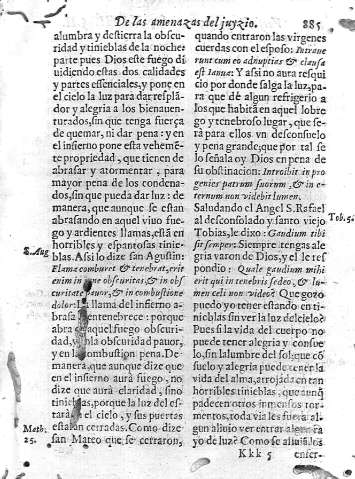 De las amenazas del juyzio. 885
alumbra y destierra la obscu-
ridad y tinieblas de la noche
parte pues Dios este fuego di
uidiendo estas dos calidades
y partes essenciales, y pone en
el cielo la luz para dar resplã-
dor y alegria a los bienauen-
turados, sin que tenga fuerça
de quemar, ni dar pena: y en
el infierno pone esta vehemẽ-
te propriedad, que tienen de
abrasar y atormentar, para
mayor pena de los condena-
dos, sin que pueda dar luz: de
manera, que aunque se estan
abrasando en aquel viuo fue-
go y ardientes llamas, está en
horribles y espantosas tinie-
S. Aug.
blas. Assi lo dize san Agustin:
Flama comburet & tenebrat, erit
enim in igne obscuritas, & in obs-
curitate pauor, & in combustione
dolor: La llama del infierno a-
brasa y entenebrece: porque
abra aquel fuego obscuri-
dad, en la obscuridad pauor,
y en la combustion pena. De
manera, que aunque dize que
en el infierno aurá fuego, no
dize que aurá claridad, sino
tinieblas, porque la luz del es-
tará el cielo, y sus puertas
estarán cerradas. Como dize
Math. 25.
san Mateo que se cerraron,
quando entraron las virgenes
cuerdas con el esposo: Intraue
runt cum eo ad nuptias & clausa
est Ianua: Y assi no aura resqui
cio por donde salga la luz, pa-
ra que dè algun refrigerio a
los que habitã en aquel lobre
go y tenebroso lugar, que se-
rà para ellos vn desconsuelo
y pena grande; que por tal se
lo señala oy Dios en pena de
su obstinacion: Introibit in pro-
genies patrum suorum, & in e-
ternum non videbit lumen.
Saludando el Angel S. Rafael
Tob. 5.
al desconsolado y santo viejo
Tobias, le dixo: Gaudium tibi
sit semper: Siempre tengas ale-
gria varon de Dios, y el le res
pondio: Quale gaudium mihi
erit qui in tenebris sedeo, & lu-
men celi non video? Que gozo
puedo yo tener estando en ti-
nieblas sin ver la luz del cielo?
Pues si la vida del cuerpo no
puede tener alegria y consue-
lo, sin la lumbre del sol; que cõ
suelo y alegria puede tener la
vida del alma, arrojada en tan
horribles tinieblas, que aunq̃
padecen otros inmensos tor-
mentos, toda via les fuera al-
gun aliuio ver entrar algun ra
yo de luz? Como se aliuiã los
Kkk 5 enfer-